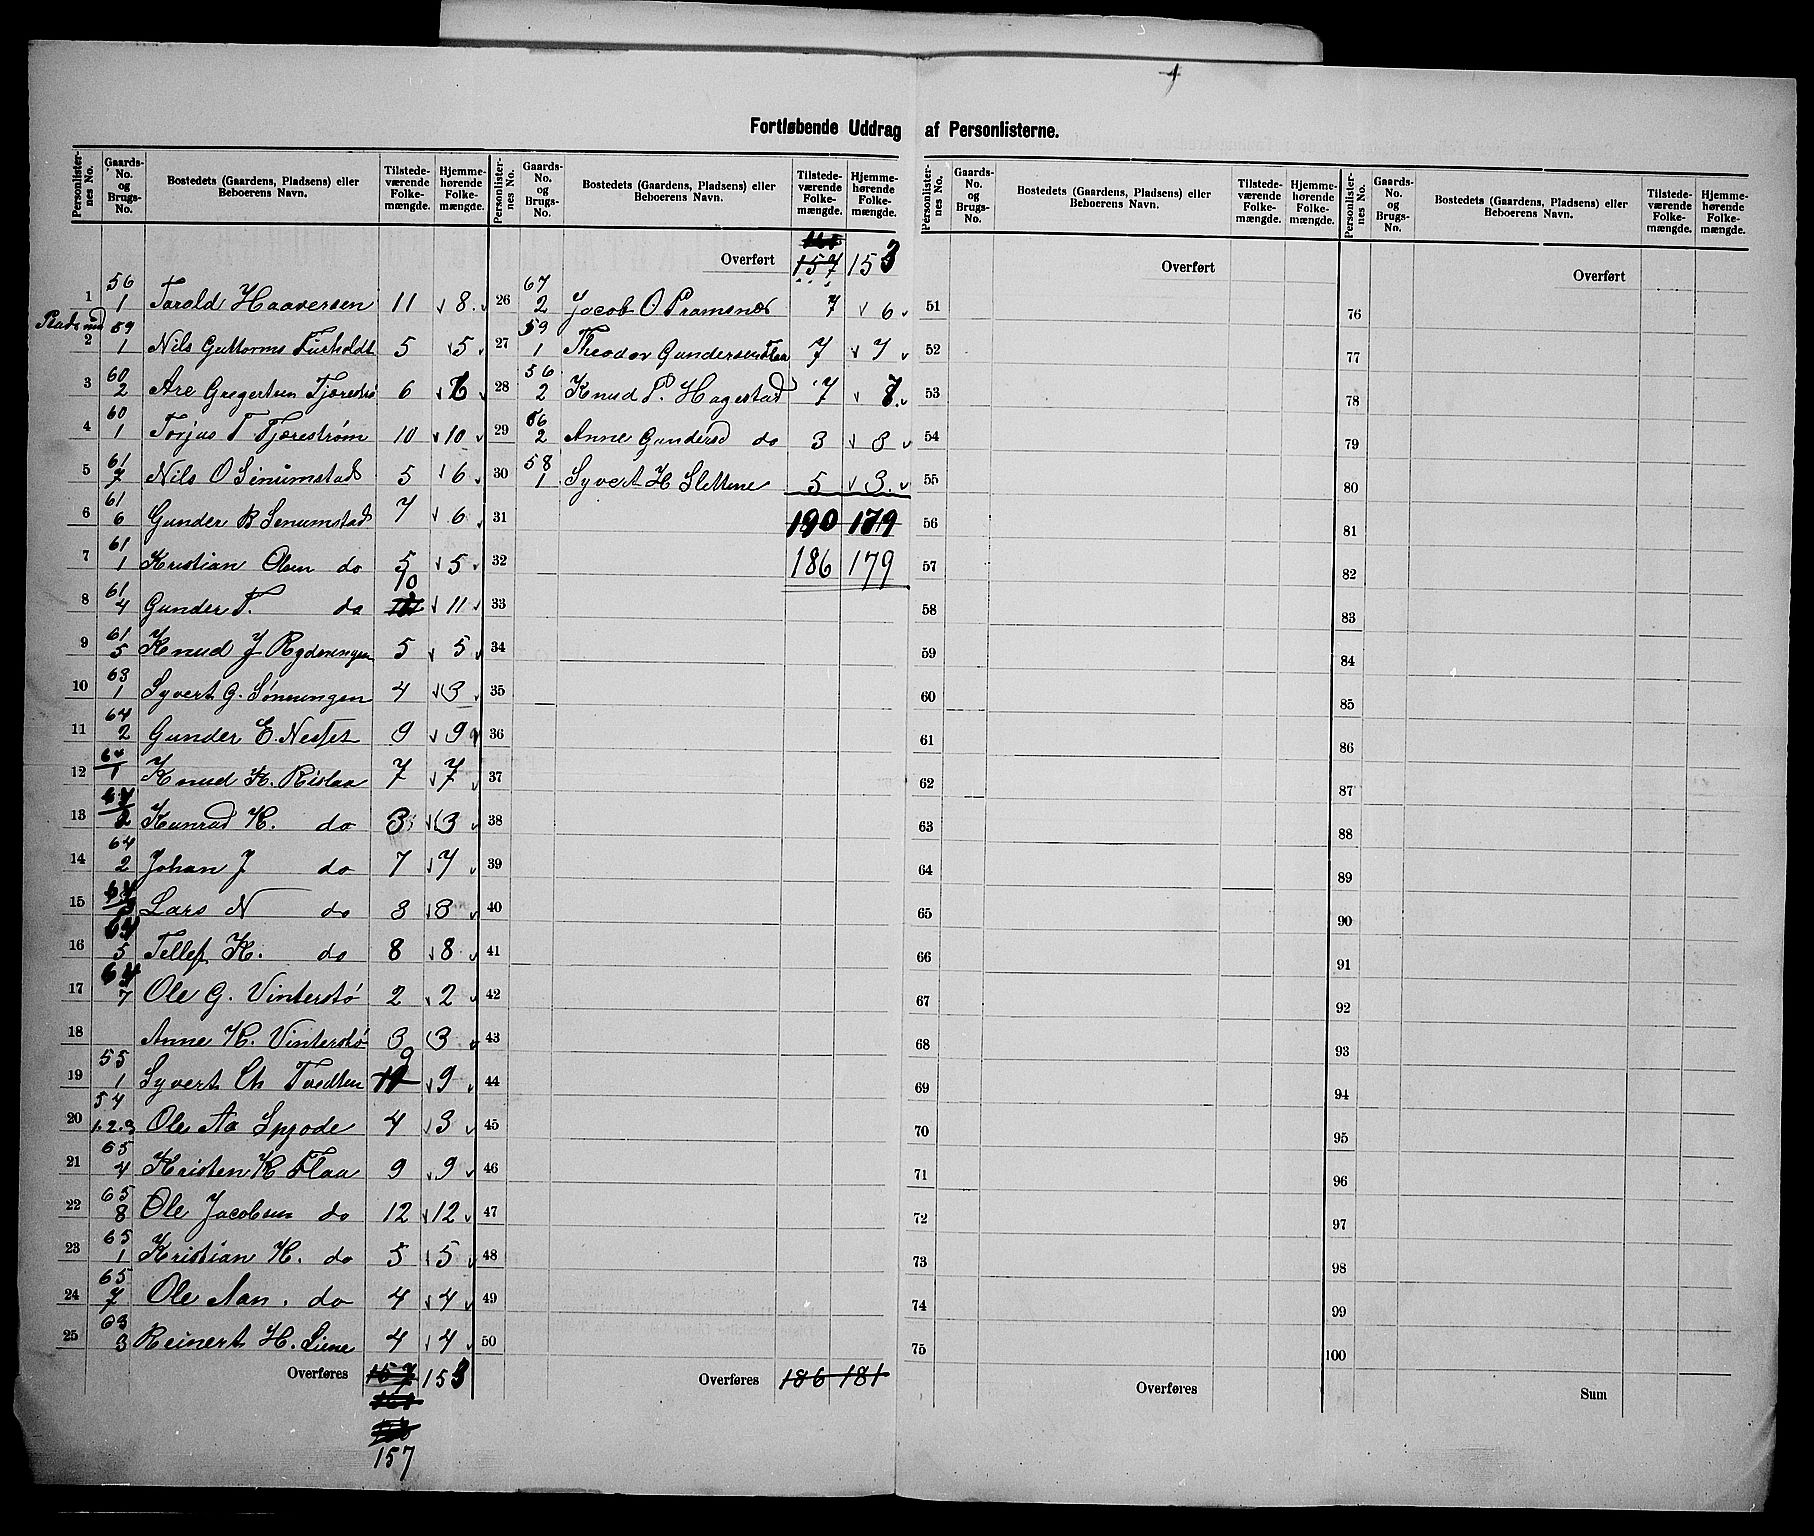 Fortløbende Uddrag af Personlisterne.
Personlisternes No. | Gaards-No. og Brugs-No. | Bostedets (Gaardens, Pladsens) eller Beboerens Navn. | Tilstedeværende Folkemængde. | Hjemmehørende Folkemængde.
1 | 56 1 | Tarald Haaversen | 11 | 8
2 | 59 1 | Nils Guttorms Furholdt | 5 | 5
3 | 60 2 | Are Gregertsen | 6 | 6
4 | 60 1 | Torjus T Tjærestrøm | 10 | 10
5 | 61 7 | Nils O Senumstad | 5 | 6
6 | 61 6 | Gunder B Senumstad | 7 | 6
7 | 61 1 | Kristian Olsen do | 5 | 5
8 | 61 4 | Gunder T. do | 10 | 11
9 | 61 5 | Knud J Rydeningen | 5 | 5
10 | 63 1 | Syvert G. Sønningen | 4 | 3
11 | 64 2 | Gunder E. Neset | 9 | 9
12 | 64 1 | Knud K. Rislaa | 7 | 7
13 | 64 2 | Kunrad K. do | 3 | 3
14 | 64 2 | Johan J do | 7 | 7
15 | 64 3 | Lars N do | 3 | 3
16 | 64 5 | Tellef K. do | 8 | 8
17 | 64 7 | Ole G. Vinterstø | 2 | 2
18 | Anne K. Vinterstø | 3 | 3
19 | 55 1 | Syvert Ch Tvedten | 9 | 9
20 | 54 1.2.3 | Ole Aa | 4 | 3
21 | 65 4 | Kristen K Flaa | 9 | 9
22 | 65 8 | Ole Jacobsen do | 12 | 12
23 | 65 1 | Kristian K. do | 5 | 5
24 | 65 7 | Ole Aan. do | 4 | 4
25 | 63 3 | Reinert H. Liene | 4 | 4
Overføres | 157 | 153
157
Personlisternes No. | Gaards-No. og Brugs-No. | Bostedets (Gaardens, Pladsens) eller Beboerens Navn. | Tilstedeværende Folkemængde. | Hjemmehørende Folkemængde.
Overført | 157 | 153
26 | 67 2 | Jacob O. Pramsnæs | 7 | 6
27 | 59 1 | Theodor Gundersen Flaa | 7 | 7
28 | 56 2 | Knud T. Hagestad | 7 | 7
29 | 56 2 | Anne Gundersd do | 3 | 3
30 | 58 1 | Syvert H Slettene | 5 | 3
31 | 190 | 179
32 | 186 | 179
33
34
35
36
37
38
39
40
41
42
43
44
45
46
47
48
49
50
Overføres | 186 | 181
Personlisternes No. | Gaards-No. og Brugs-No. | Bostedets (Gaardens, Pladsens) eller Beboerens Navn. | Tilstedeværende Folkemængde. | Hjemmehørende Folkemængde.
Overført
51
52
53
54
55
56
57
58
59
60
61
62
63
64
65
66
67
68
69
70
71
72
73
74
75
Overføres
Personlisternes No. | Gaards-No. og Brugs-No. | Bostedets (Gaardens, Pladsens) eller Beboerens Navn. | Tilstedeværende Folkemængde. | Hjemmehørende Folkemængde.
Overført
76
77
78
79
80
81
82
83
84
85
86
87
88
89
90
91
92
93
94
95
96
97
98
99
100
Sum